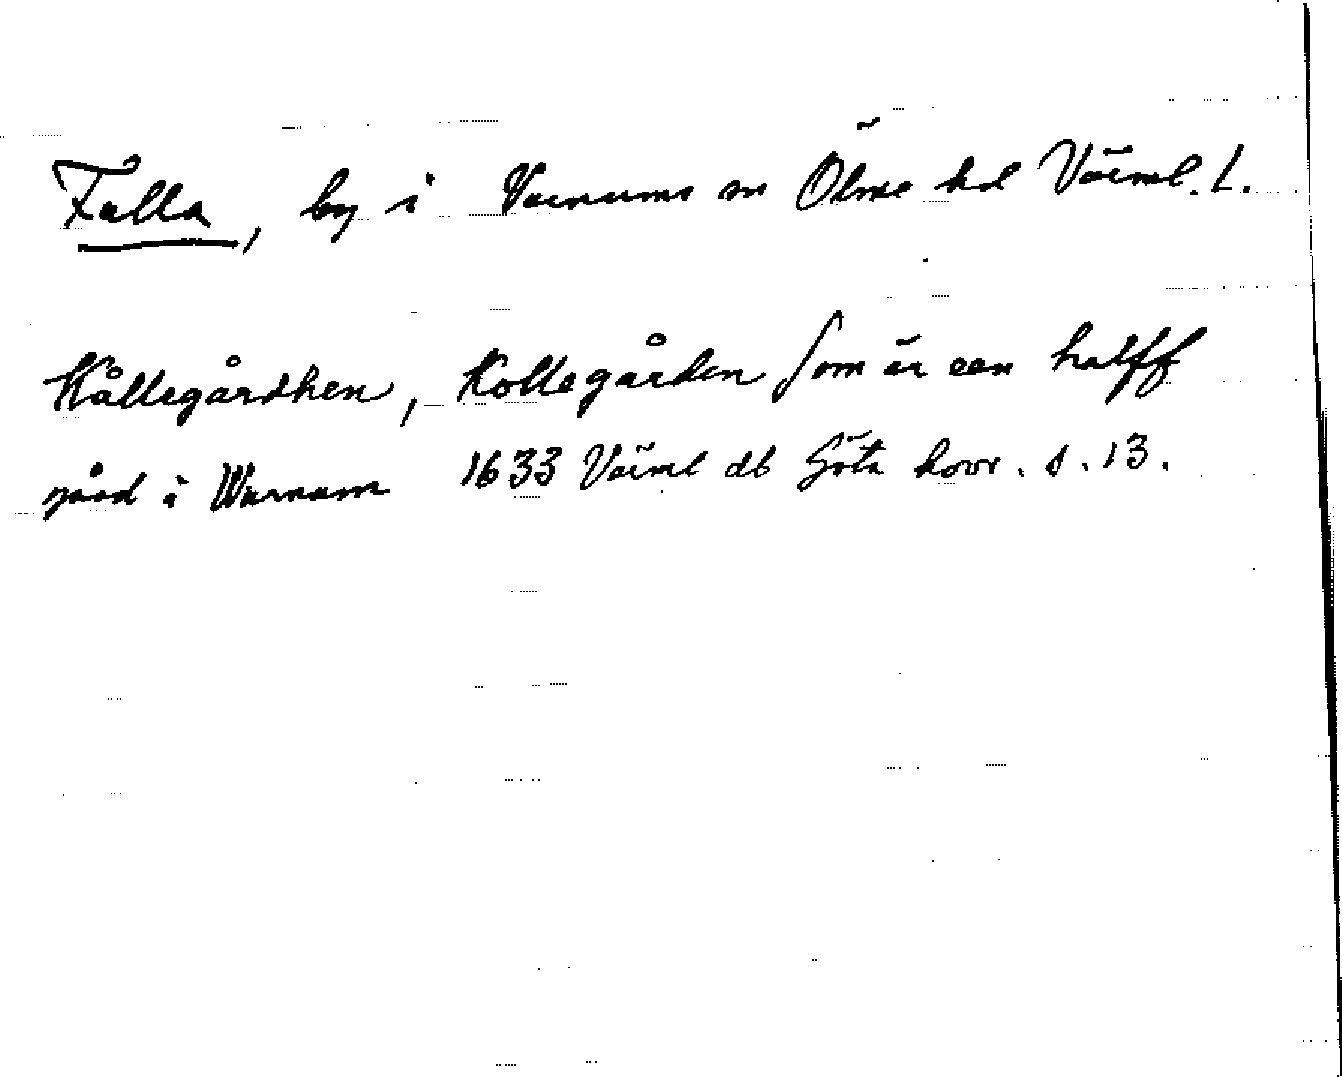 Falla, by i Varnums sn Ölme hd Värml. l.
Kållegårdhen, Kollegården som är een halff
gård i Warnum 1633 Värml db Göta hovr. s. 13.